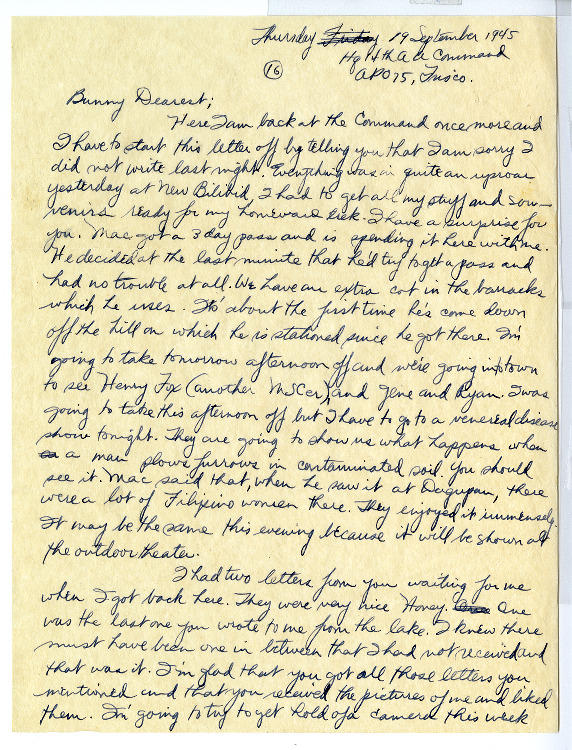 Thursday Friday 19 September 1945
Hq 14th A A Command
(16)
APO 75, Frisco.
Bunny Dearest;
Here I am back at the Command once more and
I have to start this letter off by telling you that I am sorry I
did not write last night. Everything was in quite an uproar
yesterday at New Bilibid, I had to get all my stuff and sou-
venirs ready for my homeward trek. I have a surprise for
you. Mac got a 3 day pass and is spending it here with me.
He decided at the last minute that he'd try to get a pass and
had no trouble at all. We have an extra cot in the barracks
which he uses. It's about the first time he's come down
off the hill on which he is stationed since he got there. I'm
going to take tomorrow afternoon off and we're going into town
to see Henry Fox (another MSCer) and Gene and Ryan. I was
going to take this afternoon off but I have to go to a venereal disease
show tonight. They are going to show us what happens when
a man plows furrows in contaminated soil. You should
see it. Mac said that, when he saw it at Dagupan, there
were a lot of Filipino women there. They enjoyed it immensely.
It may be the same this evening because it will be shown at
the outdoor theater.
I had two letters from you waiting for me
when I got back here. They were very nice Honey. One
was the last one you wrote to me from the lake. I knew there
must have been one in between that I had not received and
that was it. I'm glad that you got all those letters you
mentioned and that you received the pictures of me and liked
them. I'm going to try to get hold of a camera this week